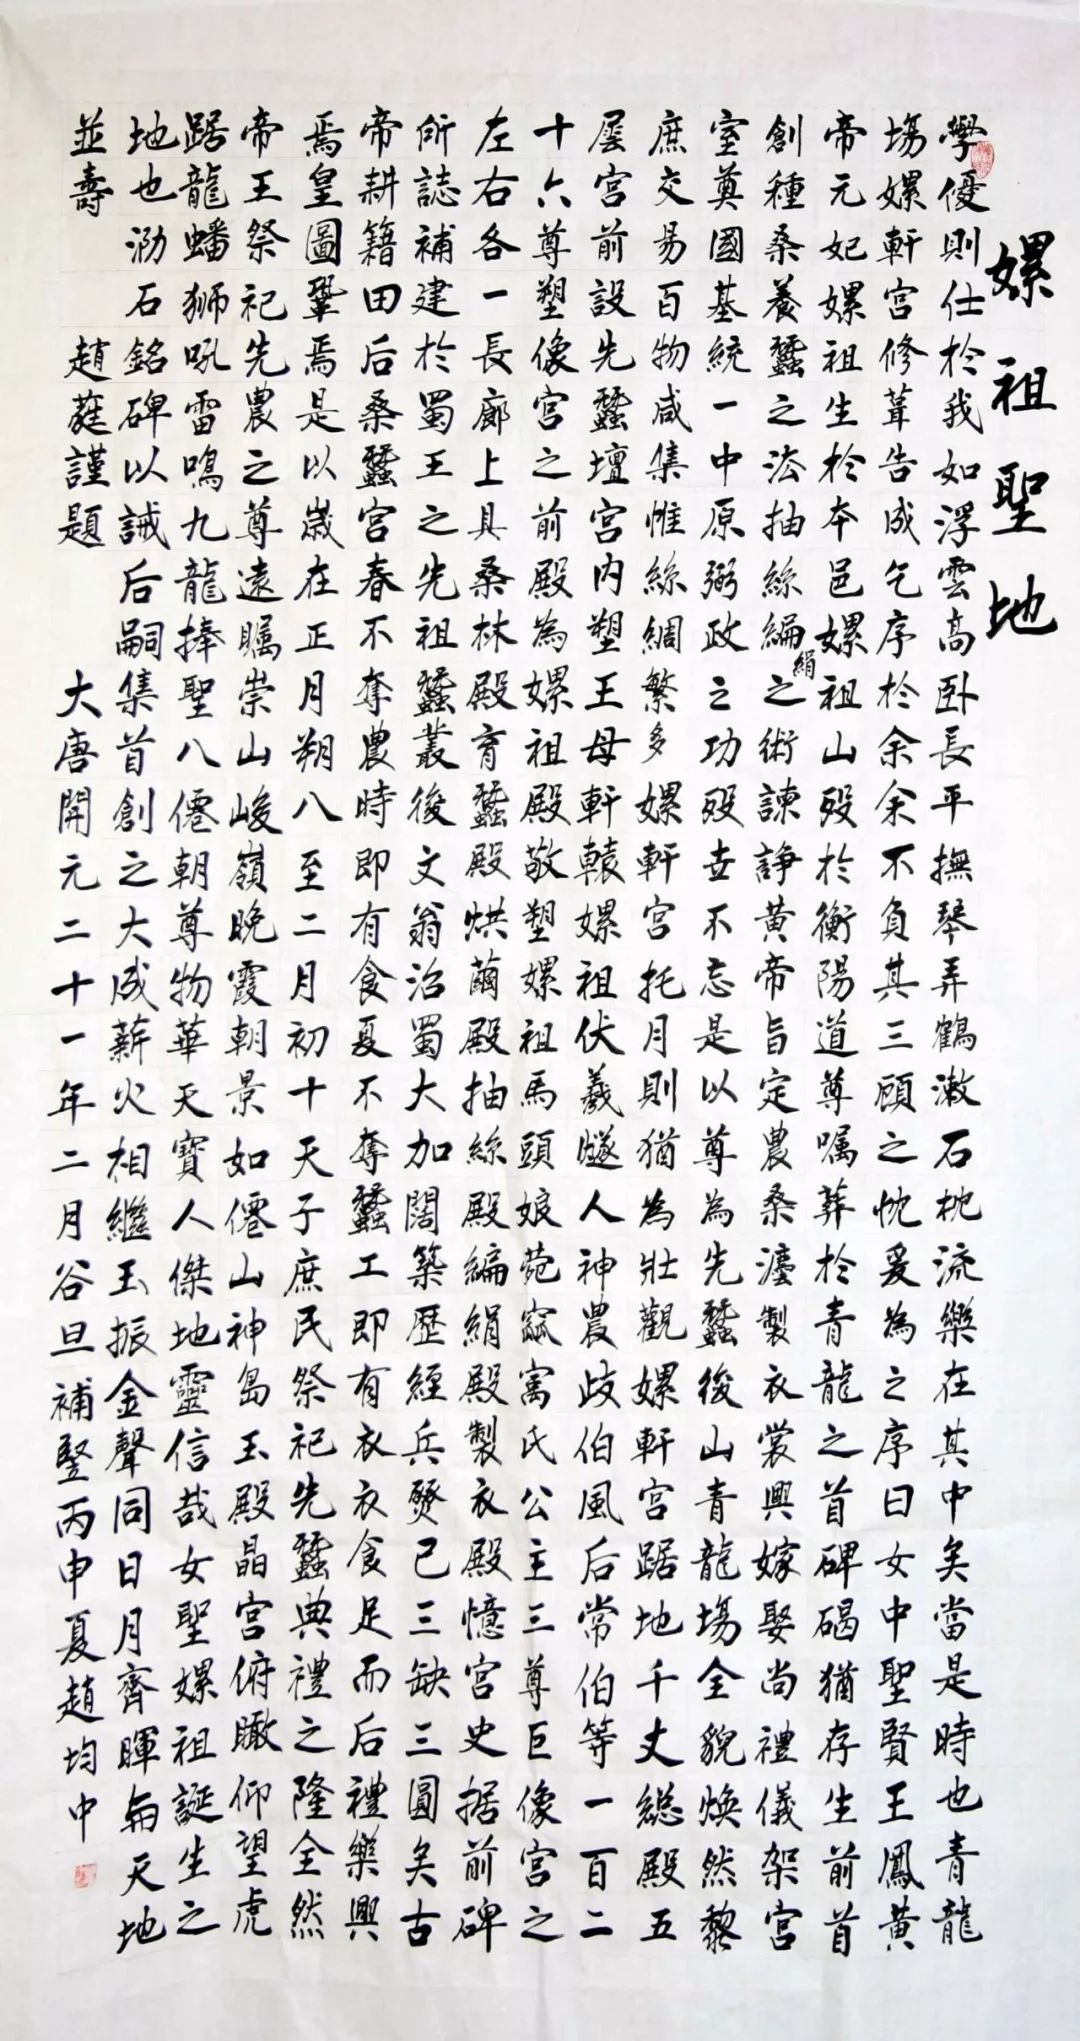 嫘祖聖地
學優則仕於我如浮雲高卧長平撫琴弄鶴漱石枕流樂在其中矣當是時也青龍
場嫘軒宮修葺告成乞序於余余不負其三顧之忱爰為之序曰女中聖賢王鳳黃
帝元妃嫘祖生於本邑嫘祖山歿於衡陽道尊嘱葬於青龍之首碑碣猶存生前首
創種桑養蠶之法抽絲編絹之術諫諍黃帝旨定農桑灋製衣裳興嫁娶尚禮儀架宮
室奠國基統一中原弼政之功歿世不忘是以尊為先蠶後山青龍場全貌煥然黎
庶交易百物咸集惟絲綢繁多嫘軒宮托月則猶為壯觀嫘軒宮踞地千丈總殿五
層宮前設先蠶壇宮內塑王母軒轅嫘祖伏羲燧人神農歧伯風后常伯等一百二
十六尊塑像宮之前殿為嫘祖殿敬塑嫘祖馬頭娘菀窳寓氏公主三尊巨像宮之
左右各一長廊上具桑林殿育蠶殿烘繭殿抽絲殿編絹殿製衣殿憶宮史据前碑
所誌補建於蜀王之先祖蠶叢後文翁治蜀大加闊築歷經兵燹已三缺三圓矣古
帝耕籍田后桑蠶宮春不奪農時即有食夏不奪蠶工即有衣衣食足而后禮樂興
焉皇圖鞏焉是以歲在正月朔八至二月初十天子庶民祭祀先蠶典禮之隆全然
帝王祭祀先農之尊遠矚崇山峻嶺晚霞朝景如僊山神島玉殿晶宮俯瞰仰望虎
踞龍蟠獅吼雷鳴九龍捧聖八僊朝尊物華天寶人傑地靈信哉女聖嫘祖誕生之
地也泐石銘碑以誡后嗣集首創之大成薪火相繼玉振金聲同日月齊暉與天地
並壽 趙蕤謹題 大唐開元二十一年二月谷旦補竪丙申夏趙均中